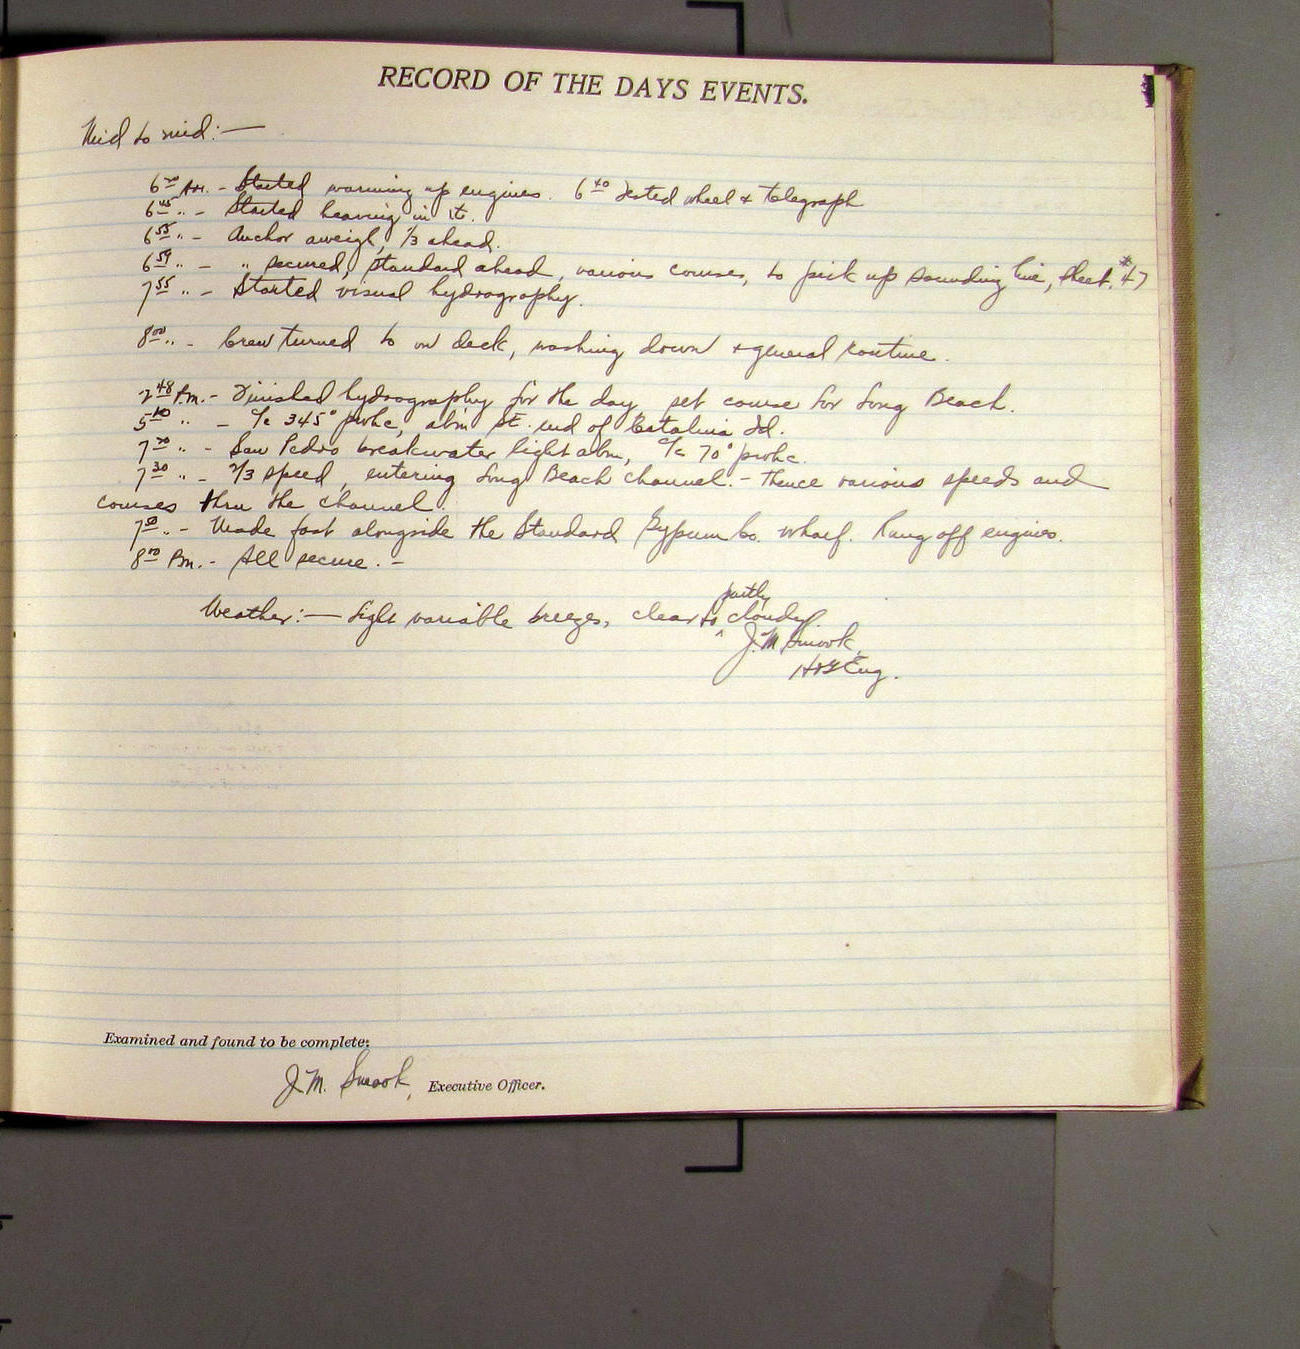 RECORD OF THE DAYS EVENTS.
Mid to mid:—
6 30 Am. - Started warming up engines. 6 40 Tested wheel & telegraph
6 45 " - Started heaving in st.
6 55 " - Anchor aweigh, 1/3 ahead.
6 59 " - " secured, standard ahead, various courses, to pick up sounding line, sheet #47
7 55 " - Started visual hydrography.
8 00 " - Crew turned to on deck, washing down & general routine.
2 48 P.m. - Finished hydrography for the day, set course for Long Beach.
5 10 " - C/c 345° pshc, abm St. end of Catalina Id.
7 " - San Pedro breakwater light abm, c/c 70° pshc.
7 30 " - 2/3 speed, entering Long Beach channel. - Thence various speeds and
courses thru the channel.
7 " - Made fast alongside the Standard Gypsum Co. wharf. Rung off engines.
8 00 Pm. - All secure. -
Weather:— Light variable breezes, clear to partly cloudy.
J. M. Smook,
H&G Eng.
Examined and found to be complete:
J. M. Smook, Executive Officer.